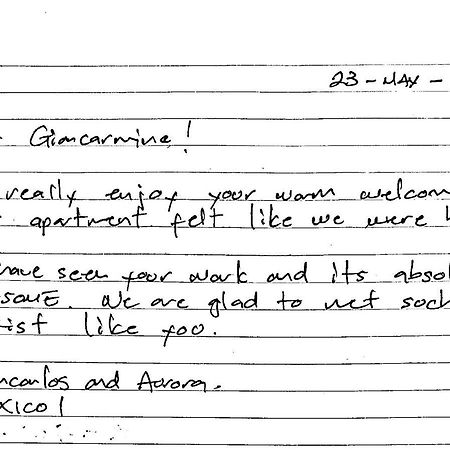 23-MAY-
Giancarmine!
really enjoy your warm welcom
apartment felt like we were h
have seen your work and its absol
SOME. We are glad to met such
ist like you.
ncarlos and Aurora.
XICO!